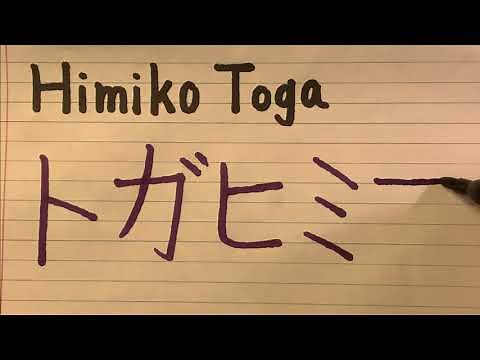 Himiko Toga
トガヒミ一